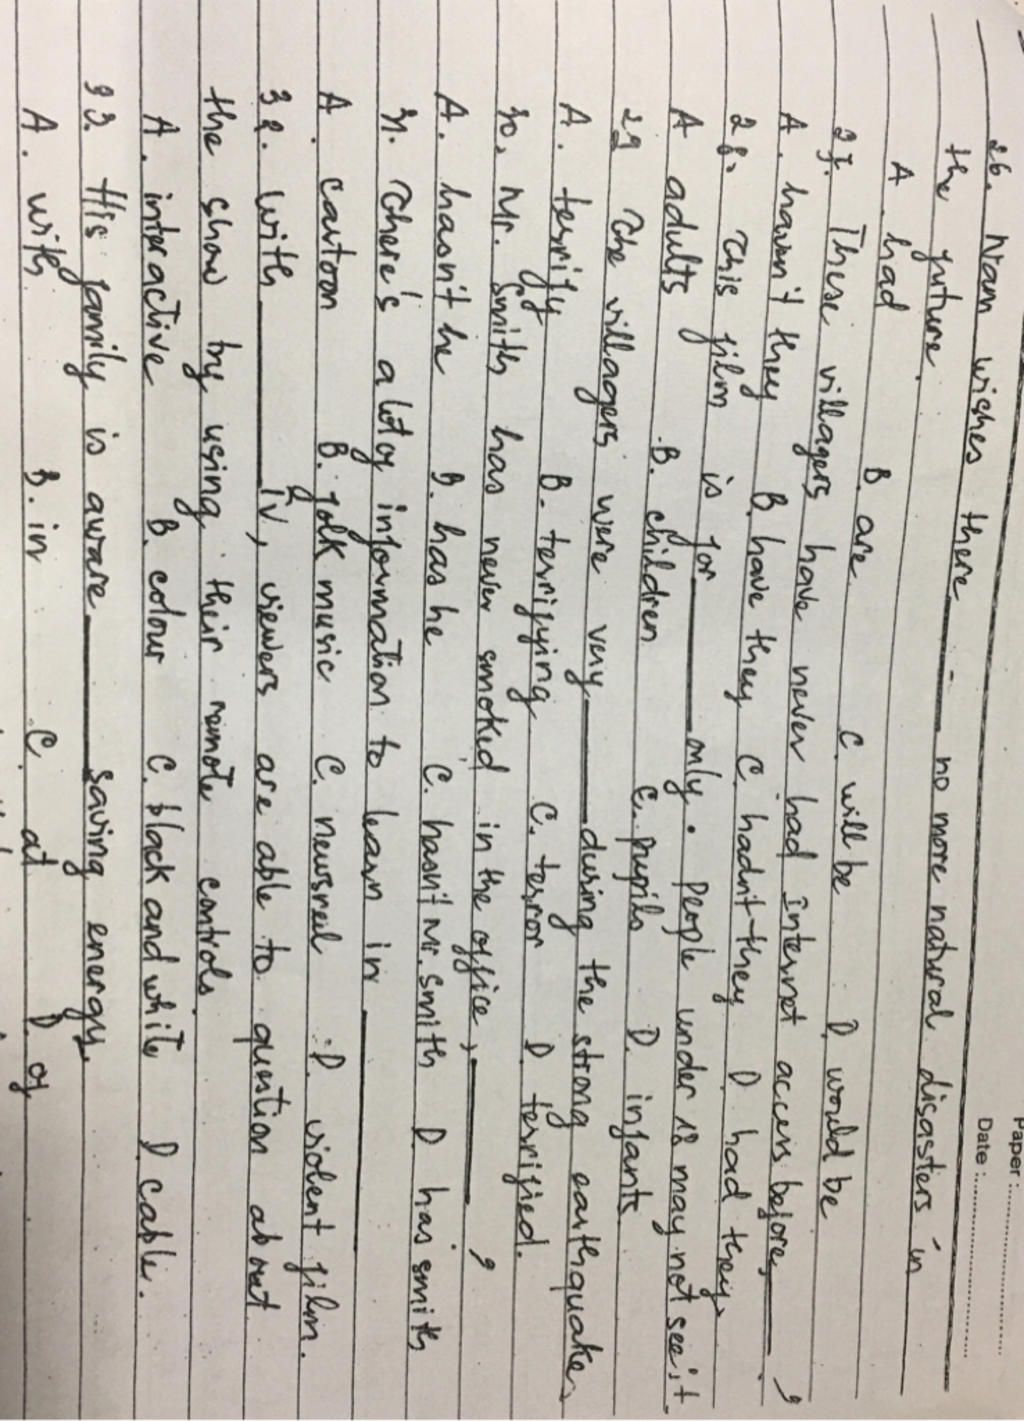 Paper :
Date :
26. Nam wishes there _____ no more natural disasters in
the future.
A. had B. are C. will be D. would be
27. These villagers have never had Internet access before, _____ ?
A. haven't they B. have they C. hadn't they D. had they
28. This film is for _____ only. People under 18 may not see it.
A adults B. children C. pupils D. infants
29 The villagers were very _____ during the strong earthquake.
A. terrify B. terrifying C. terror D. terrified.
30. Mr. Smith has never smoked in the office, _____ ?
A. hasn't he B. has he C. hasn't Mr. Smith D has smith
31. There's a lot of information to learn in _____
A. cartoon B. folk music C. newsreel D. violent film.
32. With _____ TV, viewers are able to question about
the show by using their remote controls.
A. interactive B. colour C. black and white D. cable.
33. His family is aware _____ saving energy.
A. with B. in C. at D. of